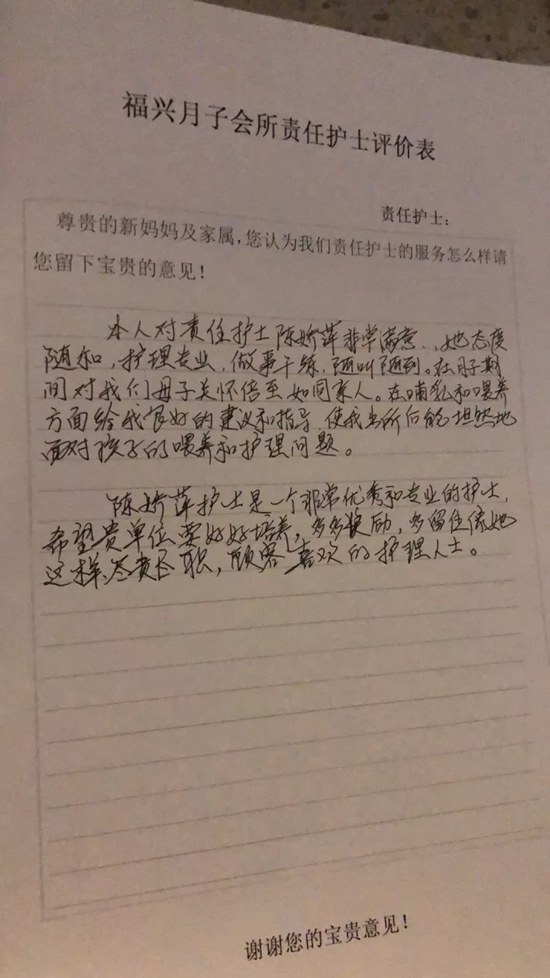 福兴月子会所责任护士评价表
责任护士：
尊贵的新妈妈及家属，您认为我们责任护士的服务怎么样请
您留下宝贵的意见！
本人对责任护士陈娇萍非常满意，她态度
随和，护理专业，做事干练，随叫随到。在月子期
间对我们母子关怀倍至如同家人。在哺乳和喂养
方面给我良好的建议和指导，使我出所后能坦然地
面对孩子的喂养和护理问题。
陈娇萍护士是一个非常优秀和专业的护士，
希望贵单位要好好培养，多多奖励，多留住像她
这样尽责尽职，顾客喜欢的护理人士。
谢谢您的宝贵意见！